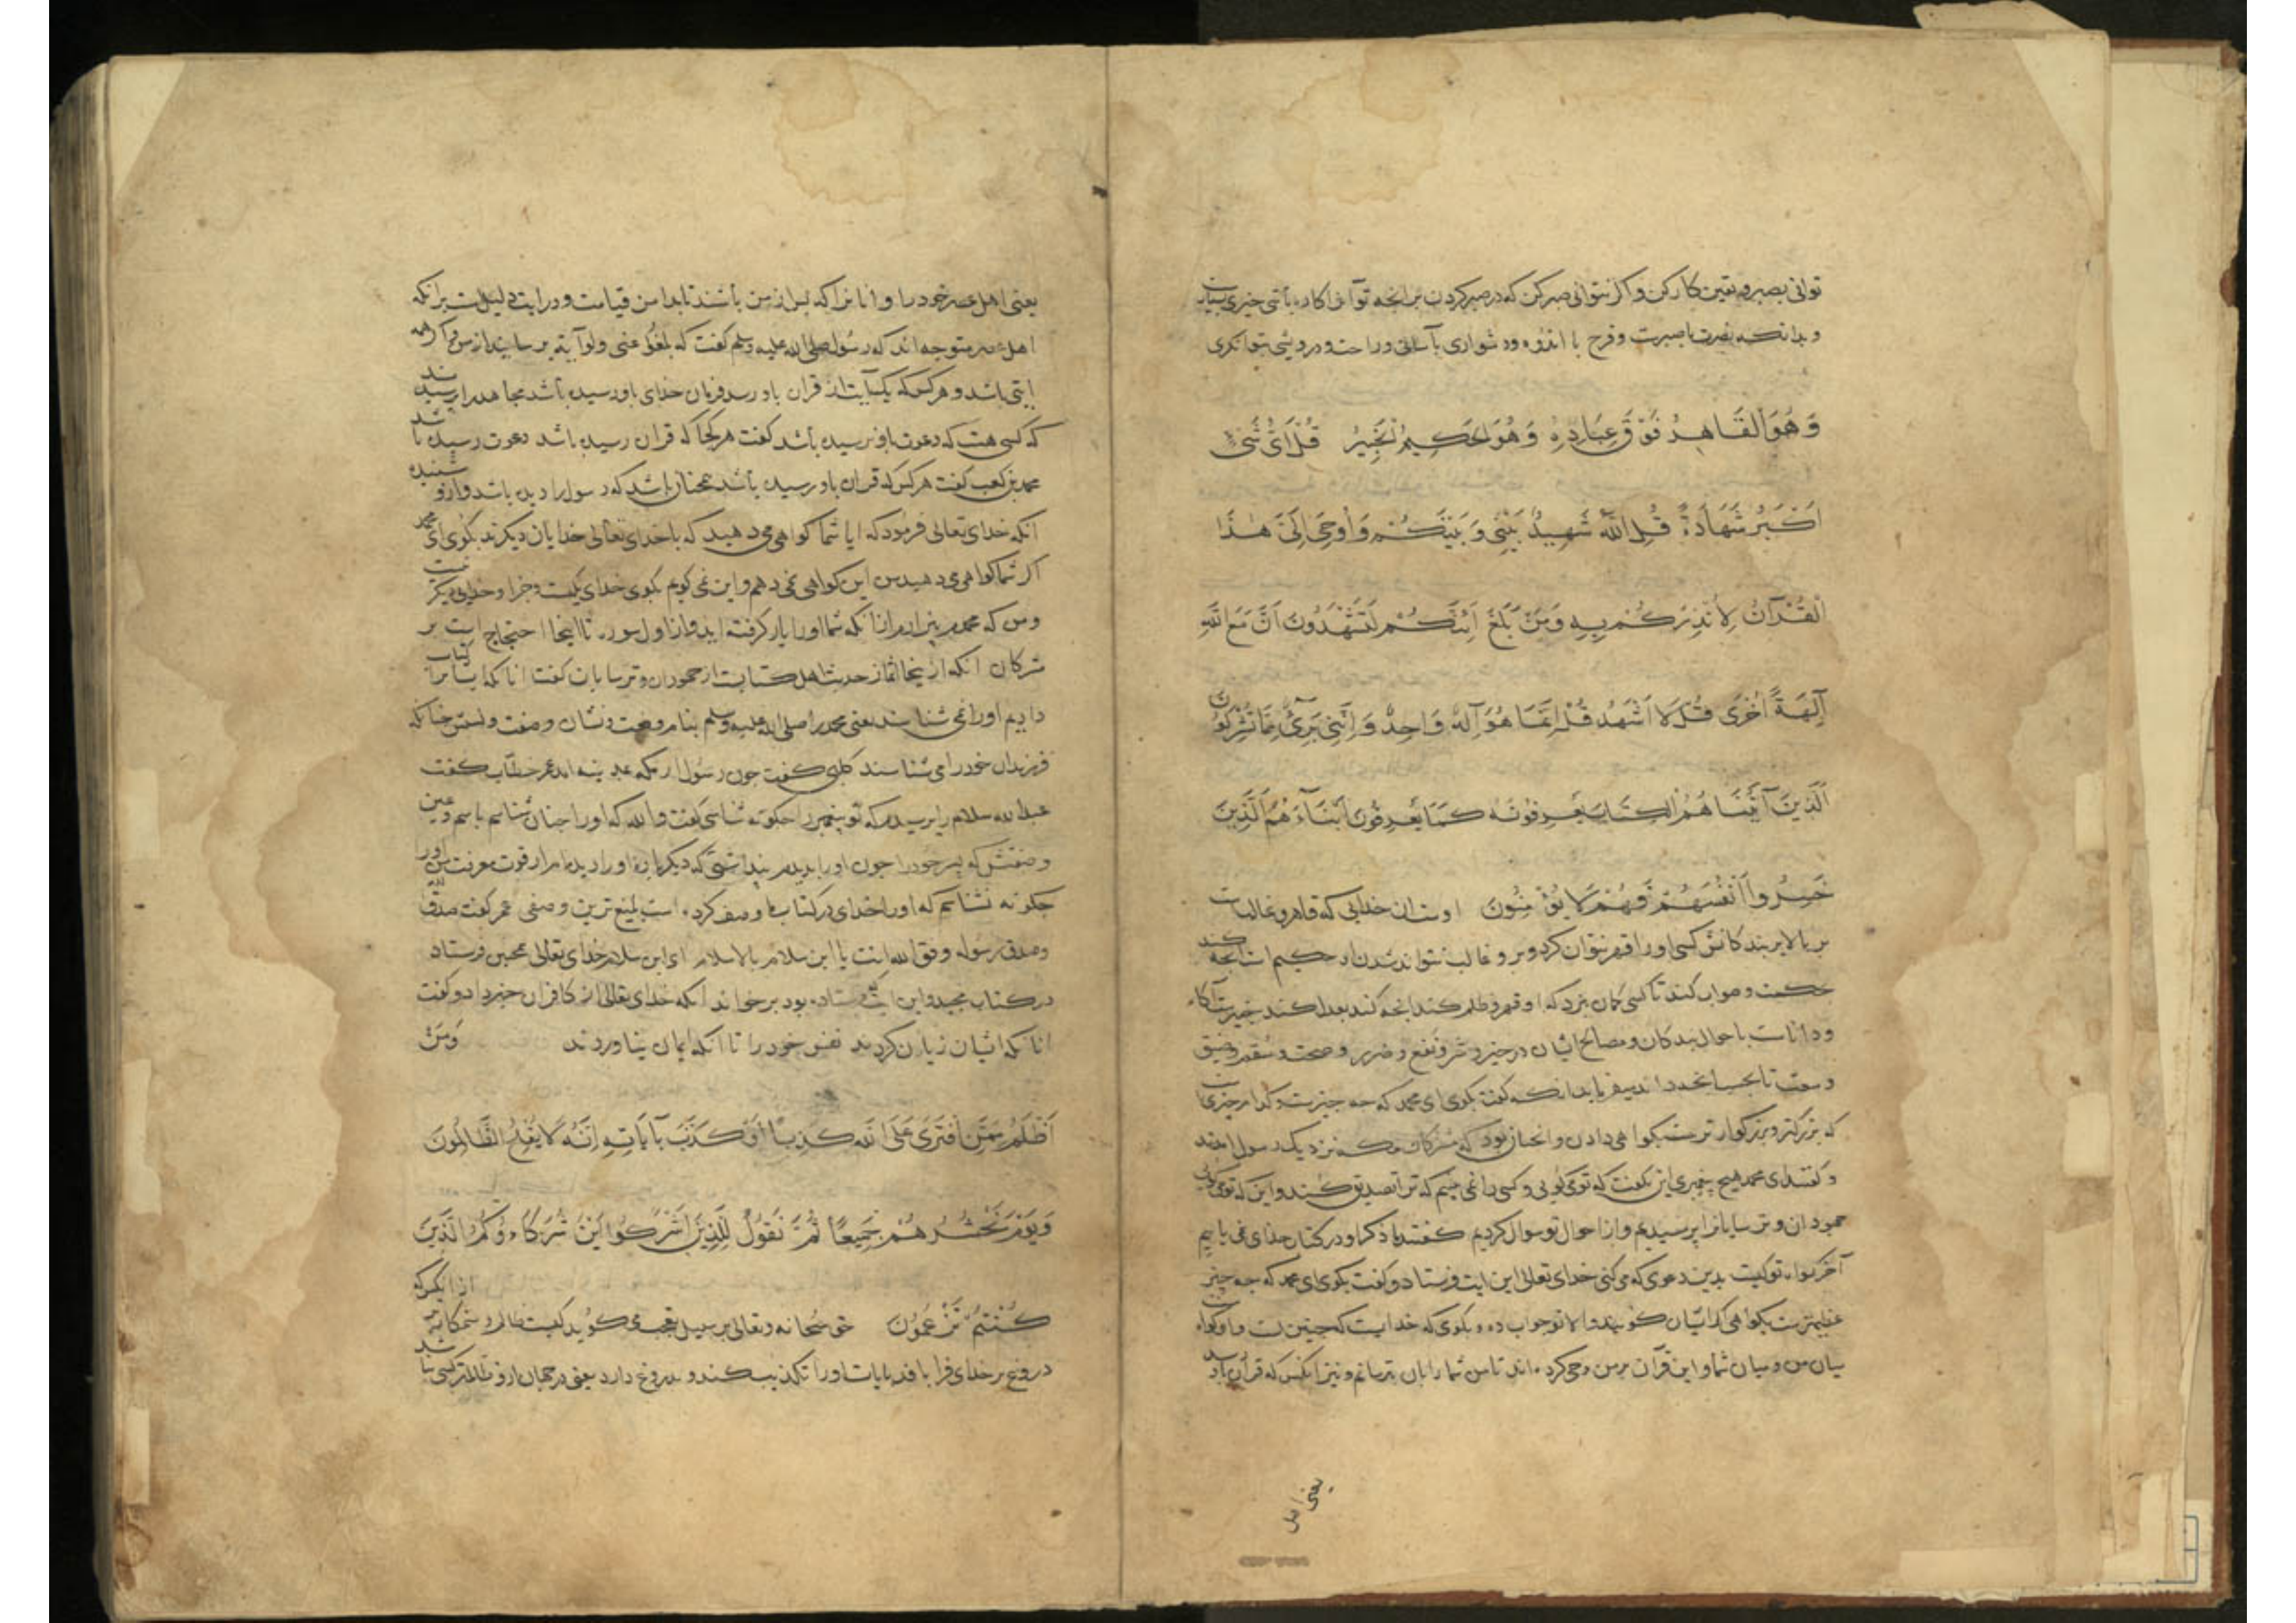 توانی بصبر و یقین کار کن و اکر نتوانی صبر کن که در صبر کردن بر آنجه تو آنرا کاره باشی خیری بسیارست
و بدانکه نصرت با صبرست و فرج با اندوه و دشواری با آسانی و راحت و درویشی بتوانکری
وَهُوَ الْقَاهِرُ فَوْقَ عِبَادِهِ وَهُوَ الْحَكِيمُ الْخَبِيرُ قُلْ اَىُّ شَىْءٍ
اَكْبَرُ شَهَادَةً قُلِ اللَّهُ شَهِيدٌ بَيْنِى وَبَيْنَكُمْ وَاُوحِىَ اِلَىَّ هٰذَا
الْقُرْآنُ لِاُنْذِرَكُمْ بِهِ وَمَنْ بَلَغَ اَئِنَّكُمْ لَتَشْهَدُونَ اَنَّ مَعَ اللَّهِ
آلِهَةً اُخْرَى قُلْ لَا اَشْهَدُ قُلْ اِنَّمَا هُوَ اِلَهٌ وَاحِدٌ وَاِنَّنِى بَرِىءٌ مِمَّا تُشْرِكُونَ
اَلَّذِينَ آتَيْنَاهُمُ الْكِتَابَ يَعْرِفُونَهُ كَمَا يَعْرِفُونَ اَبْنَاءَهُمْ الَّذِينَ
خَسِرُوا اَنْفُسَهُمْ فَهُمْ لَا يُؤْمِنُونَ اوست ان خدایی که قاهر و غالبست
بر بالا بر بندکانش کسی اورا قهر نتوان کرد و بر و غالب نتواند شدن او حکیم است آنجه کند
حکمت و صواب کند تا کسی کمان نبرد که او قهر و ظلم کند آنجه کند بعدل کند خبیرست آکاه
و داناست باحوال بندکان و مصالح ایشان در خیر و شر و نفع و ضرر و صحت و سقم و ضیق
و سعت تا بحسب انکه کفت بکوی ای محمد که جه جیزست و کدام جیز است
که بزرکتر و بزرکوارترست بکواهی دادن و انجنان بود که مشرکان مکه نزدیک رسول امدند
و کفتند ای محمد هیچ بیغمبری این نکفت که تو می کویی و کسی را نمی بینیم که ترا تصدیق کند و این که تو می کویی
جهودان و ترسایانرا برسیدیم و از احوال تو سوال کردیم کفتند ما ذکر او در کتاب خدای نمی یابیم
آخر کواه تو کیست بدین دعوی که می کنی خدای تعالی این ایت فرستاد و کفت بکوی ای محمد که جه جیز
عظیم ترست بکواهی اکر ایشان کویند والا تو جواب ده و بکوی که خدایست که جنین است و او کواه
میان من و میان شما و این قرآن بر من وحی کرده اند تا من شما را بان بترسانم و نیز انکس که قرآن باو رسد
یعنی اهل
یعنی اهل عصر خود را و انانرا که بس از من باشند تا بدامن قیامت و در ایت دلیلست بر انکه
اهل عصر متوجه اند که رسول صلی الله علیه وسلم کفت که بلغوا عنی ولو آیة برسانید از من و اکر همه
ایتی باشد و هر کس که یک آیت از قران باو رسد فرمان خدای باو رسیده باشد مجاهد را برسیدند
که کسی هست که دعوت باو نرسیده باشد کفت هر کجا که قران رسیده باشد دعوت رسیده باشد
محمد بن کعب کفت هر کس که قران باو رسیده باشد همجنان باشد که رسول را دیده باشد و ازو شنیده
انکه خدای تعالی فرمود که ایا شما کواهی می دهید که با خدای تعالی خدایان دیکرند بکوی ای محمد
اکر شما کواهی می دهید من این کواهی نمی دهم و این نمی کویم بکوی خدای یکیست و جز او خدایی دیکر نیست
و من که محمدم بیزارم از انکه شما اورا یار کرفته اید و از اول سوره تا اینجا احتجاج است بر
مشرکان انکه از اینجا اغاز حدیث اهل کتابست از جهودان و ترسایان کفت انانکه ایشانرا کتاب
دادیم اورا می شناسند یعنی محمد را صلی الله علیه وسلم بنام و نعت و نشان و صفت و نسبش جنانکه
فرزندان خود را می شناسند کلبی کفت جون رسول از مکه بمدینه امد عمر خطاب کفت
عبد الله سلام را برسیدم که تو بیغمبر را جکونه شناسی کفت والله که اورا جنان شناسم باسم و عین
و صفتش که بسر خود را جون اورا بدیدم بنداشتی که دیکر باره اورا دیده ام از قوت معرفت من اورا
جکونه نشناسم که اورا خدای در کتاب ما وصف کرده است بلیغ ترین وصفی عمر کفت صدق الله
وصدق رسوله وفق الله انت یا ابن سلام بالاسلام ای ابن سلام خدای تعالی همجنین فرستاد
در کتاب مجید و این ایت که فرستاده بود برخواند انکه خدای تعالی از کافران خبر داد و کفت
انانکه ایشان زیان کردند نفس خود را تا انکه ایمان نیاوردند وَمَنْ
اَظْلَمُ مِمَّنِ افْتَرَى عَلَى اللَّهِ كَذِبًا اَوْ كَذَّبَ بِآيَاتِهِ اِنَّهُ لَا يُفْلِحُ الظَّالِمُونَ
وَيَوْمَ نَحْشُرُهُمْ جَمِيعًا ثُمَّ نَقُولُ لِلَّذِينَ اَشْرَكُوا اَيْنَ شُرَكَاؤُكُمُ الَّذِينَ
كُنْتُمْ تَزْعُمُونَ حق سبحانه و تعالی بر سبیل تعجب می کوید کیست ظالم و ستمکاره تر از انکس که
دروغ بر خدای فرا بافد یا بایات اورا تکذیب کند و بدروغ دارد یعنی در جهان ازو ظالمتر کسی نباشد